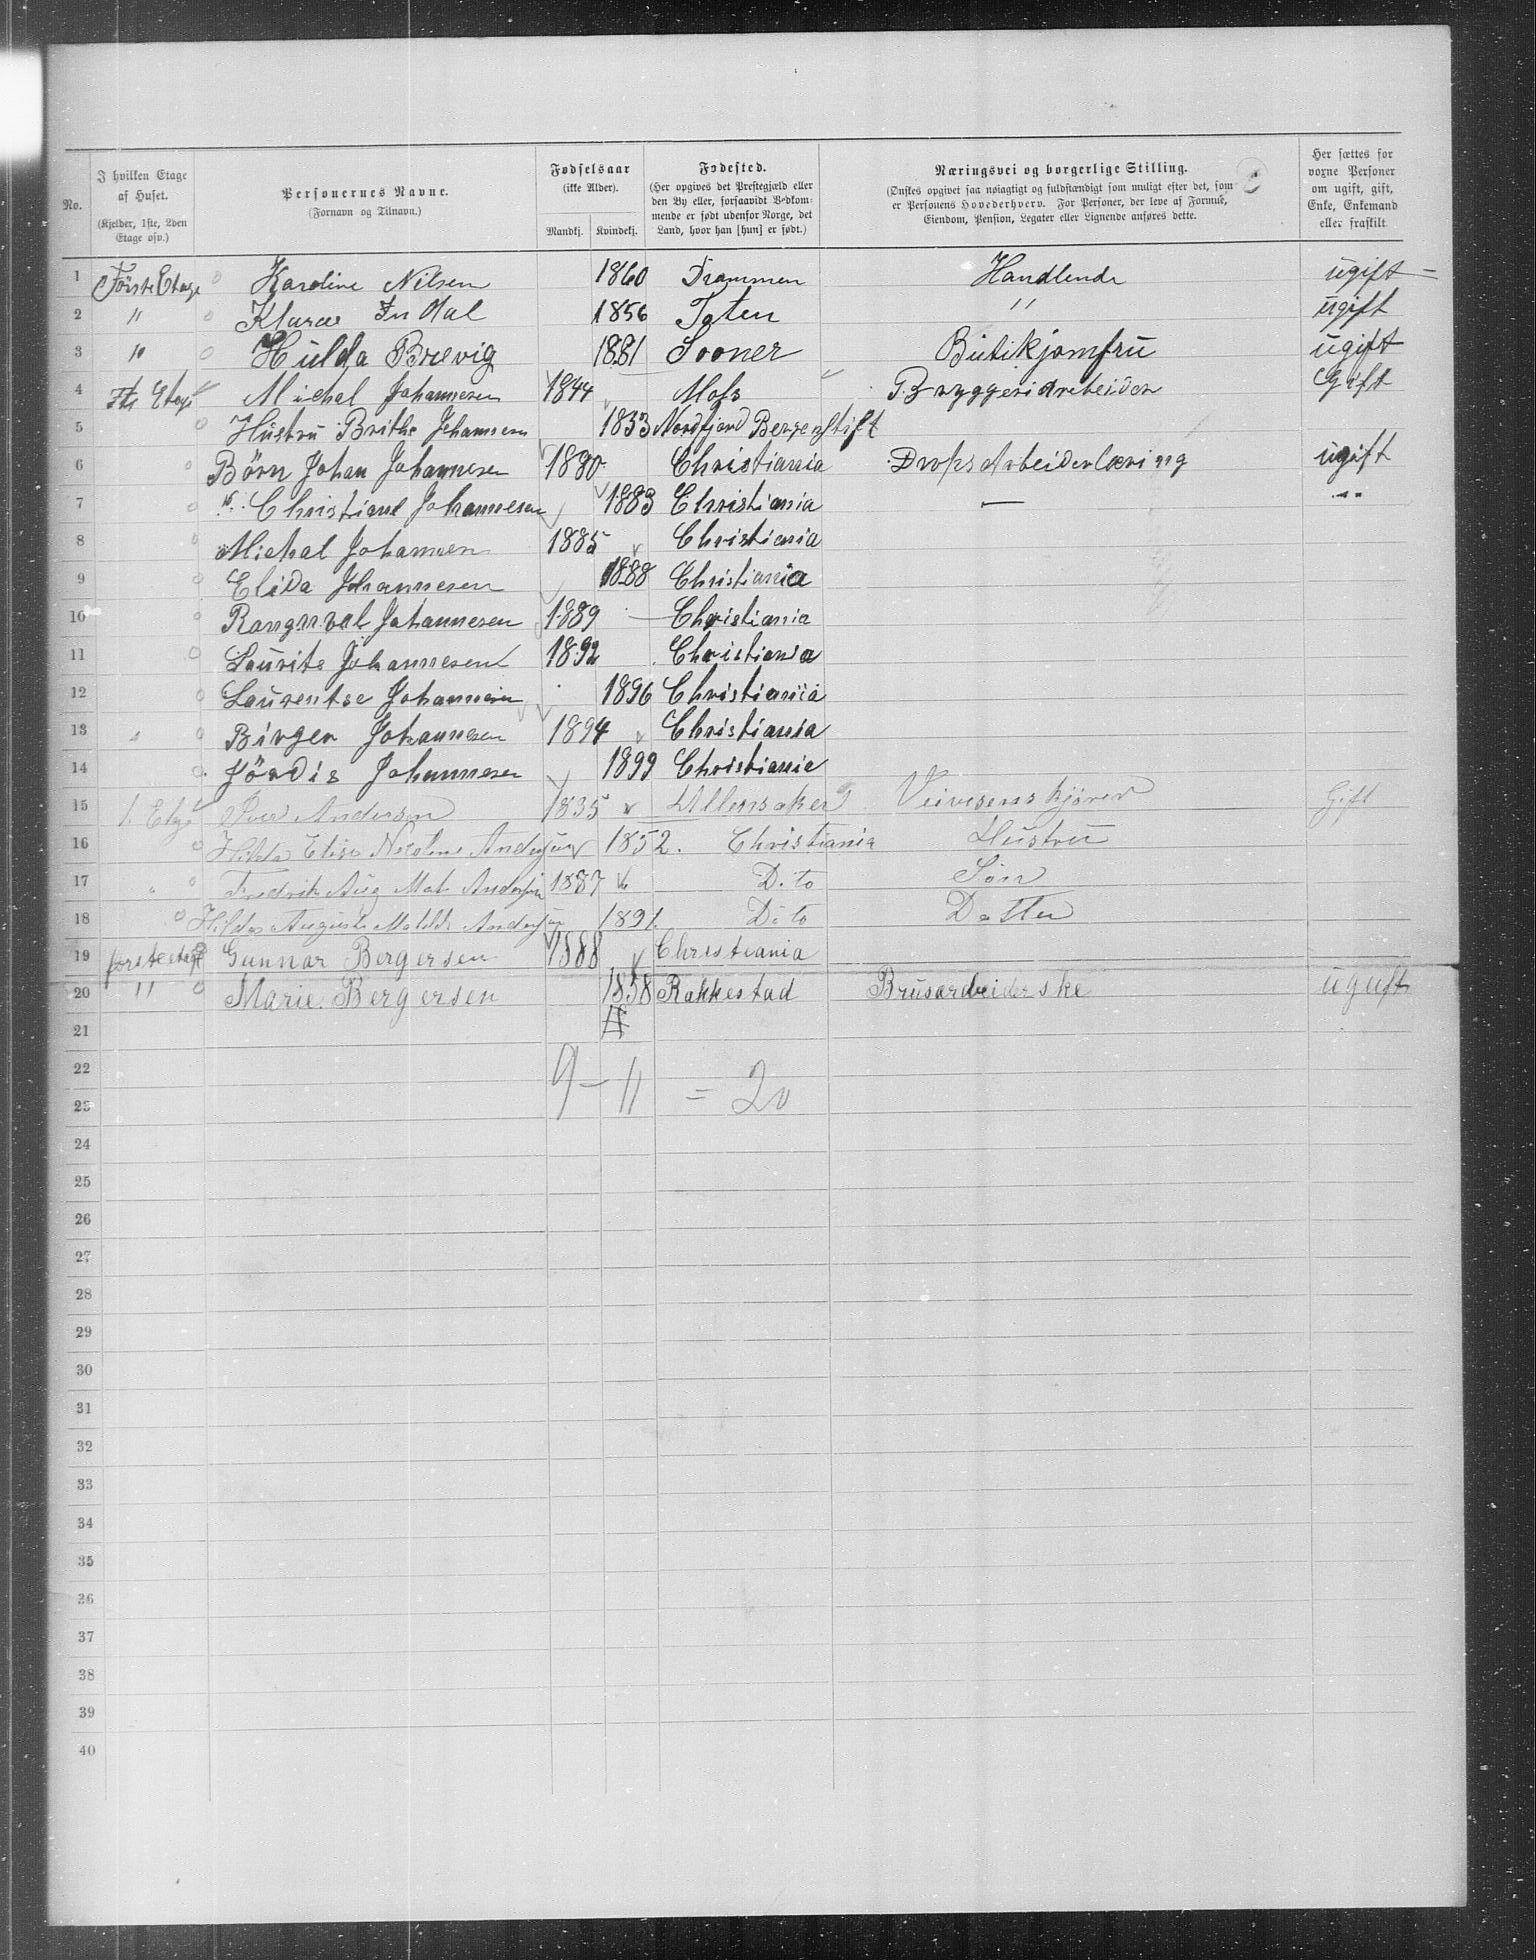 No. I hvilken Etage af Huset. (Kjelder, 1ste, 2den Etage osv.) Personernes Navne. (Fornavn og Tilnavn.) Fødselsaar (ikke Alder). Mandkj. Kvindekj. Fødested. (Her opgives det Prestegjæld eller den By eller, forsaavidt Vedkommende er født udenfor Norge, det Land, hvor han [hun] er født.) Næringsvei og borgerlige Stilling. (Ønskes opgivet saa nøiagtigt og fuldstændigt som muligt efter det, som er Personens Hovederhverv. For Personer, der leve af Formue, Eiendom, Pension, Legater eller Lignende anføres dette. Her sættes for voxne Personer om ugift, gift, Enke, Enkemand eller fraskilt.
1 Første Etage Karoline Nilsen 1860 Drammen Handlende ugift
2 " Klara Indal 1856 Toten " ugift
3 " Hulda Brevig 1881 Sooner Butikjomfru ugift
4 Etage Michal Johannesen 1844 Moss Bryggeriarbeider Gift
5 Hustru Brithe Johannesen 1853 Nordfjord Bergenstift
6 Børn Johan Johannesen 1880 Christiania Drops Arbeiderlæring ugift
7 " Christiane Johannesen 1883 Christiania — "
8 Michal Johannesen 1885 Christiania
9 Elida Johannesen 1888 Christiania
10 Rangnval Johannesen 1889 Christiania
11 Laurits Johannesen 1892 Christiania
12 Laurentse Johannesen 1896 Christiania
13 Birger Johannesen 1894 Christiania
14 Hjørdis Johannesen 1899 Christiania
15 1. Etage Andersen 1835 Ullensaker Gift
16 Hilda Elise Nicoline Andersen 1852. Christiania Hustru
17 " Fredrik Aug Mat Andersen 1887 Dito Søn
18 Hilda Augusta Matilde Andersen 1891. Dito Datter
19 første etage Gunnar Bergersen 1888 Christiania
20 " Marie Bergersen 1858 Rakkestad Brusarbeiderske uguft
21
22 9 – 11 = 20
23
24
25
26
27
28
29
30
31
32
33
34
35
36
37
38
39
40